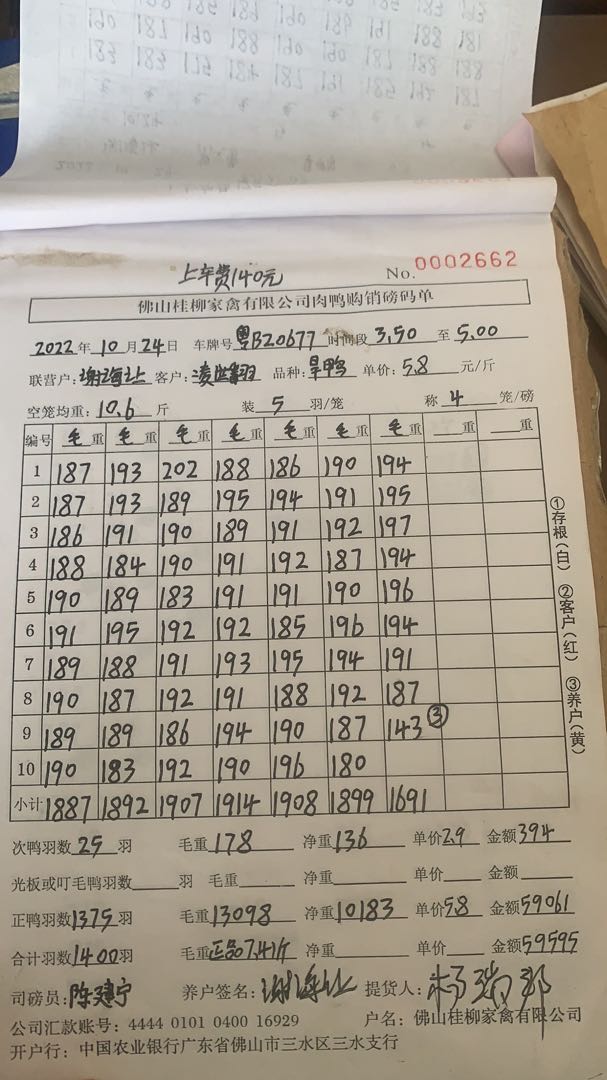 上车费140元
No. 0002662
佛山桂柳家禽有限公司肉鸭购销磅码单
2022年10月24日 车牌号粤BZ0677 时间段3,50至5.00
联营户: 客户: 品种:旱鸭 单价:5.8元/斤
空笼均重:10.6斤 装5羽/笼 称4笼/磅
编号 毛重 毛重 毛重 毛重 毛重 毛重 毛重 重 重
1 187 193 202 188 186 190 194
2 187 193 189 195 194 191 195
3 186 191 190 189 191 192 197
4 188 184 190 191 192 187 194
5 190 189 183 191 191 190 196
6 191 195 192 192 185 196 194
7 189 188 191 193 195 194 191
8 190 187 192 191 188 192 187
9 189 189 186 194 190 187 143 ③
10 190 183 192 190 196 180
小计 1887 1892 1907 1914 1908 1899 1691
①存根(白) ②客户(红) ③养户(黄)
次鸭羽数25羽 毛重178 净重136 单价2.9 金额394
光板或叮毛鸭羽数 羽 毛重 净重 单价 金额
正鸭羽数1375羽 毛重13098 净重10183 单价5.8 金额59061
合计羽数1400羽 毛重正品7.41斤 净重 单价 金额59595
司磅员:陈建宁 养户签名: 提货人:
公司汇款账号:4444 0101 0400 16929 户名:佛山桂柳家禽有限公司
开户行:中国农业银行广东省佛山市三水区三水支行